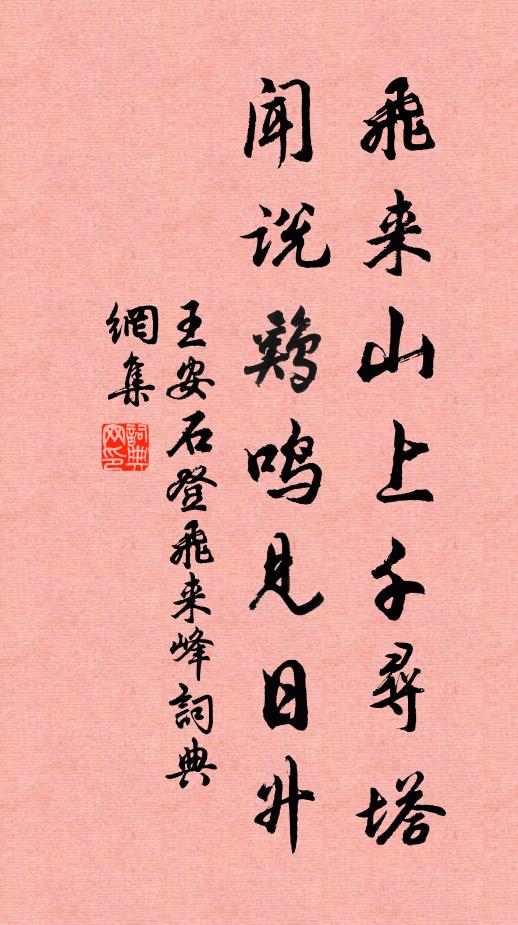 飛来山上千尋塔
闻说鷄鳴見日升
王安石登飛来峰詞典
網集
詞典
网印